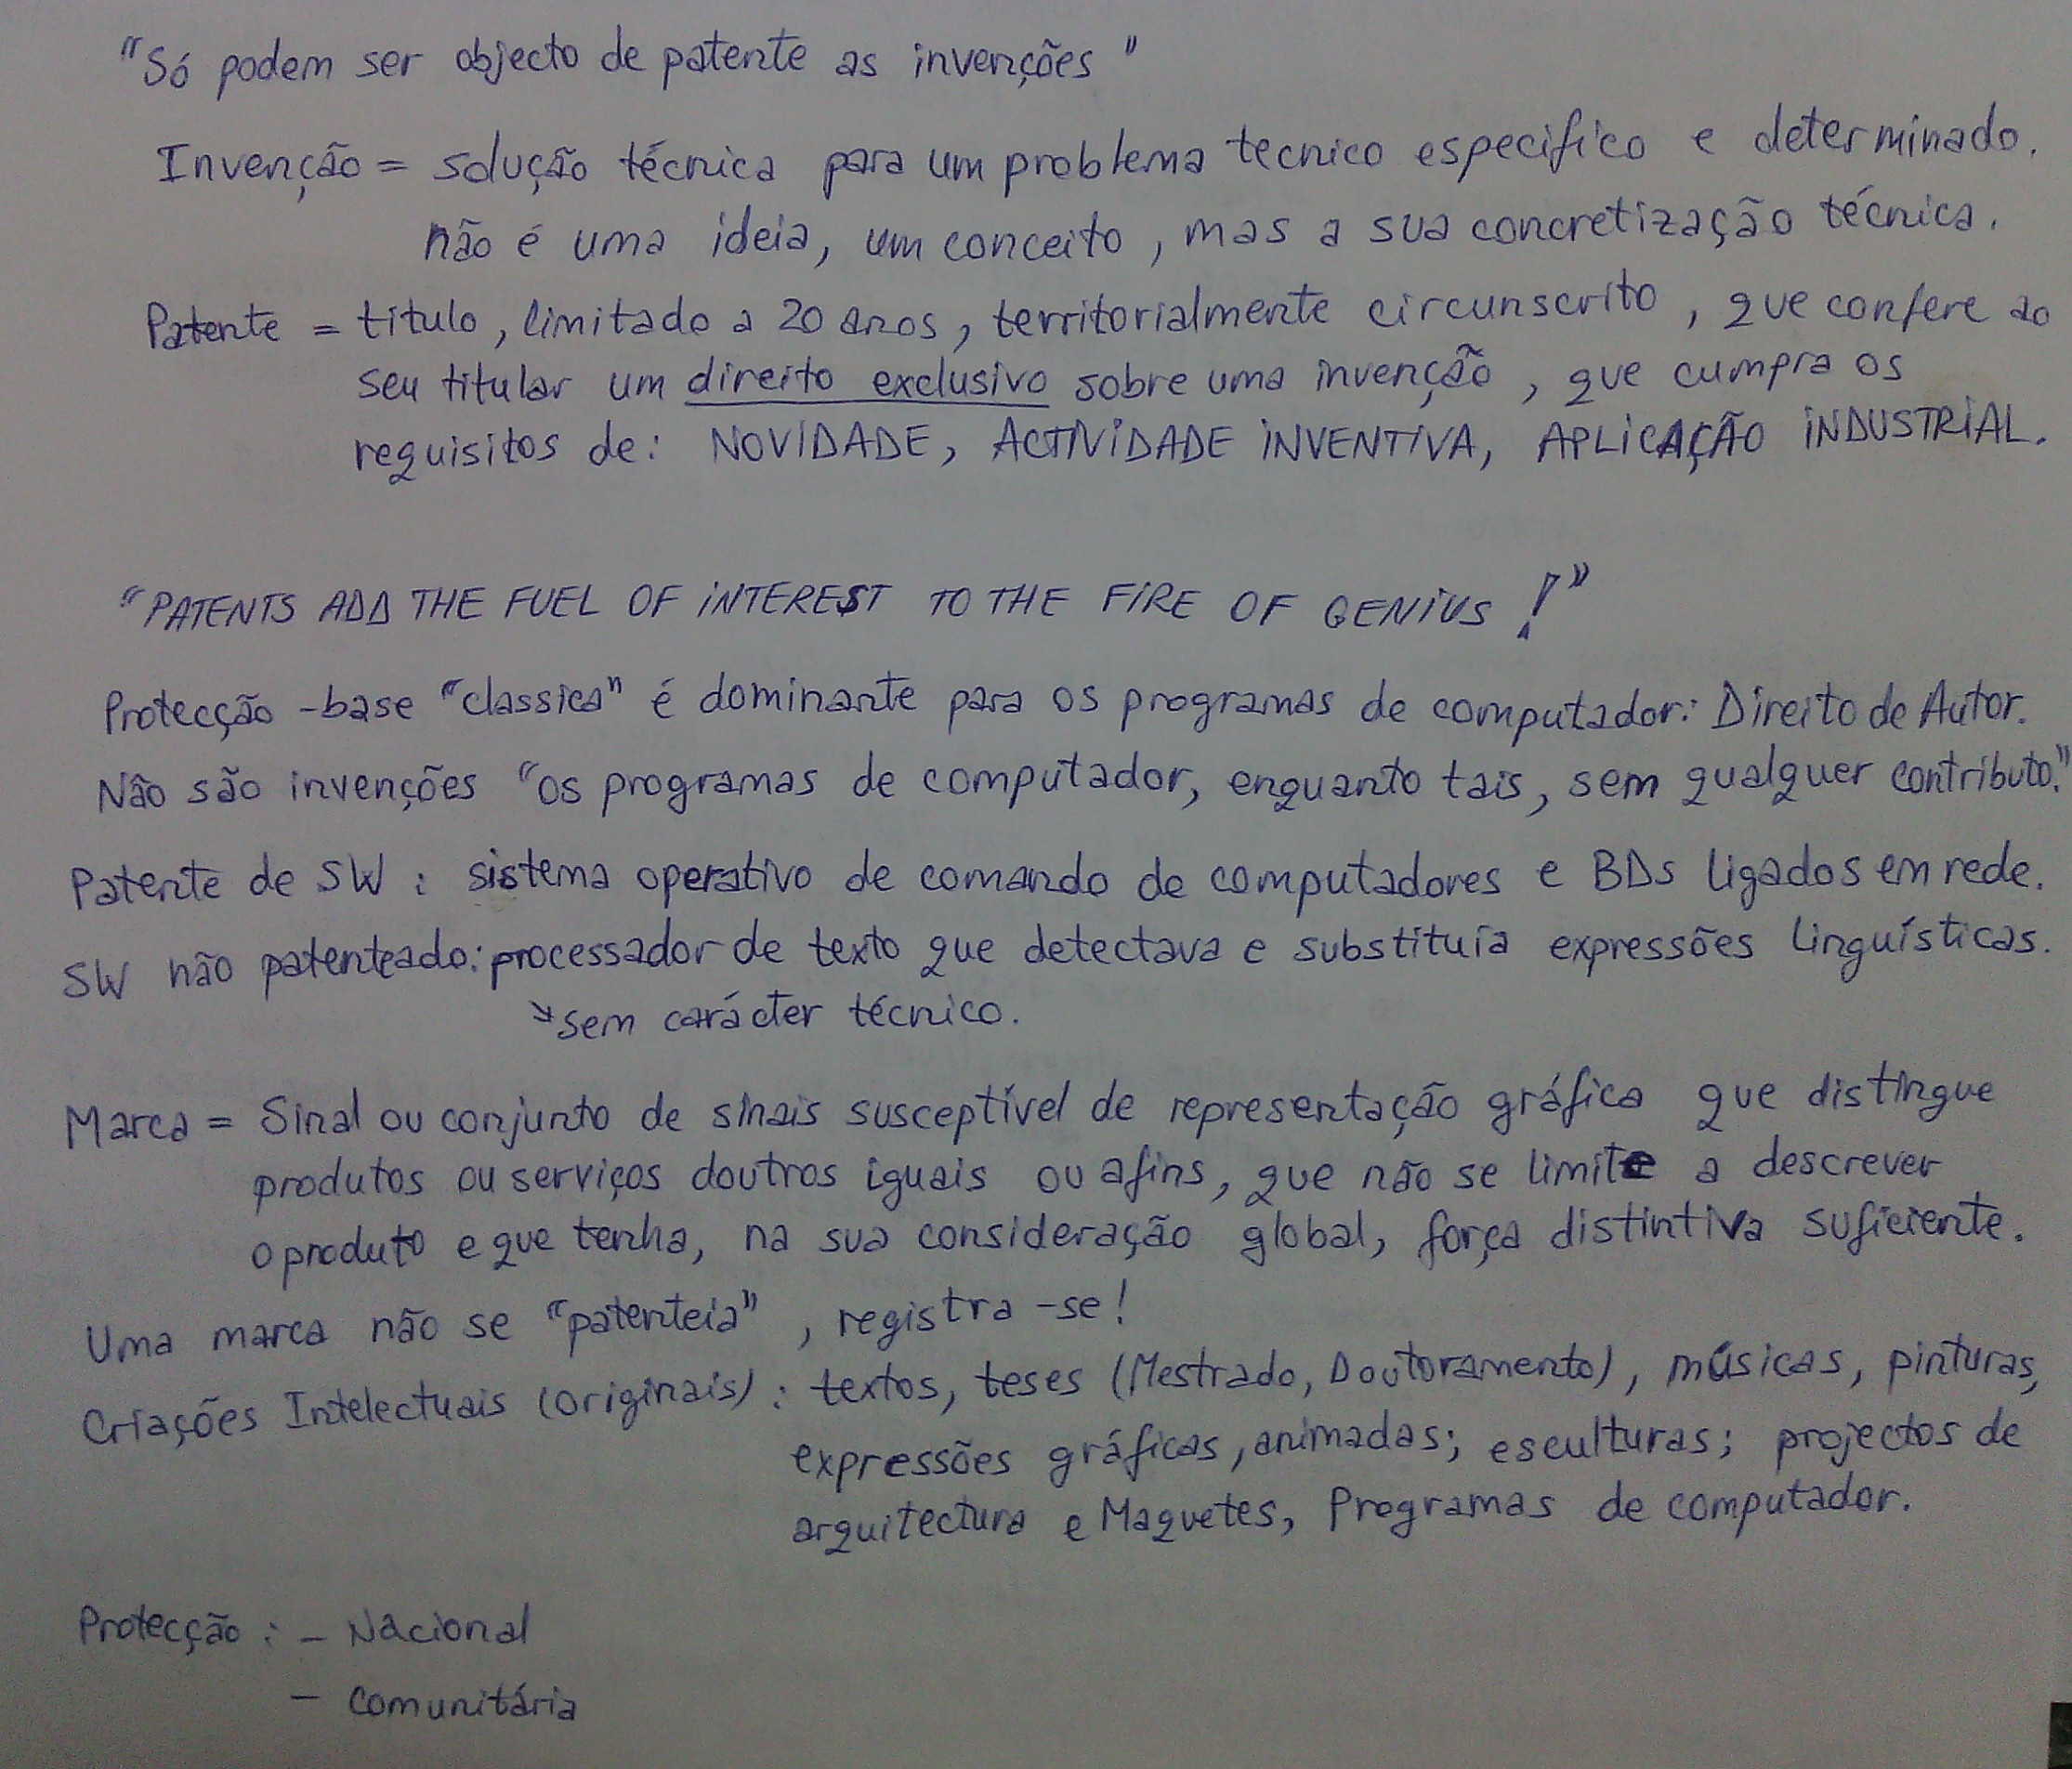 "Só podem ser objecto de patente as invenções"
Invenção = solução técnica para um problema tecnico especifico e determinado.
não é uma ideia, um conceito, mas a sua concretização técnica.
Patente = titulo, limitado a 20 anos, territorialmente circunscrito, que confere ao
seu titular um direito exclusivo sobre uma invenção, que cumpra os
requisitos de: NOVIDADE, ACTIVIDADE INVENTIVA, APLICAÇÃO INDUSTRIAL.
"PATENTS ADD THE FUEL OF INTEREST TO THE FIRE OF GENIUS!"
Protecção-base "classica" é dominante para os programas de computador: Direito de Autor.
Não são invenções "os programas de computador, enquanto tais, sem qualquer contributo."
Patente de SW: sistema operativo de comando de computadores e BDs ligados em rede.
SW não patenteado: processador de texto que detectava e substituía expressões linguísticas.
sem carácter técnico.
Marca = Sinal ou conjunto de sinais susceptível de representação gráfica que distingue
produtos ou serviços doutros iguais ou afins, que não se limite a descrever
o produto e que tenha, na sua consideração global, força distintiva suficiente.
Uma marca não se "patenteia", registra-se!
Criações Intelectuais (originais): textos, teses (Mestrado, Doutoramento), músicas, pinturas,
expressões gráficas, animadas; esculturas; projectos de
arquitectura e Maquetes, Programas de computador.
Protecção: - Nacional
- Comunitária